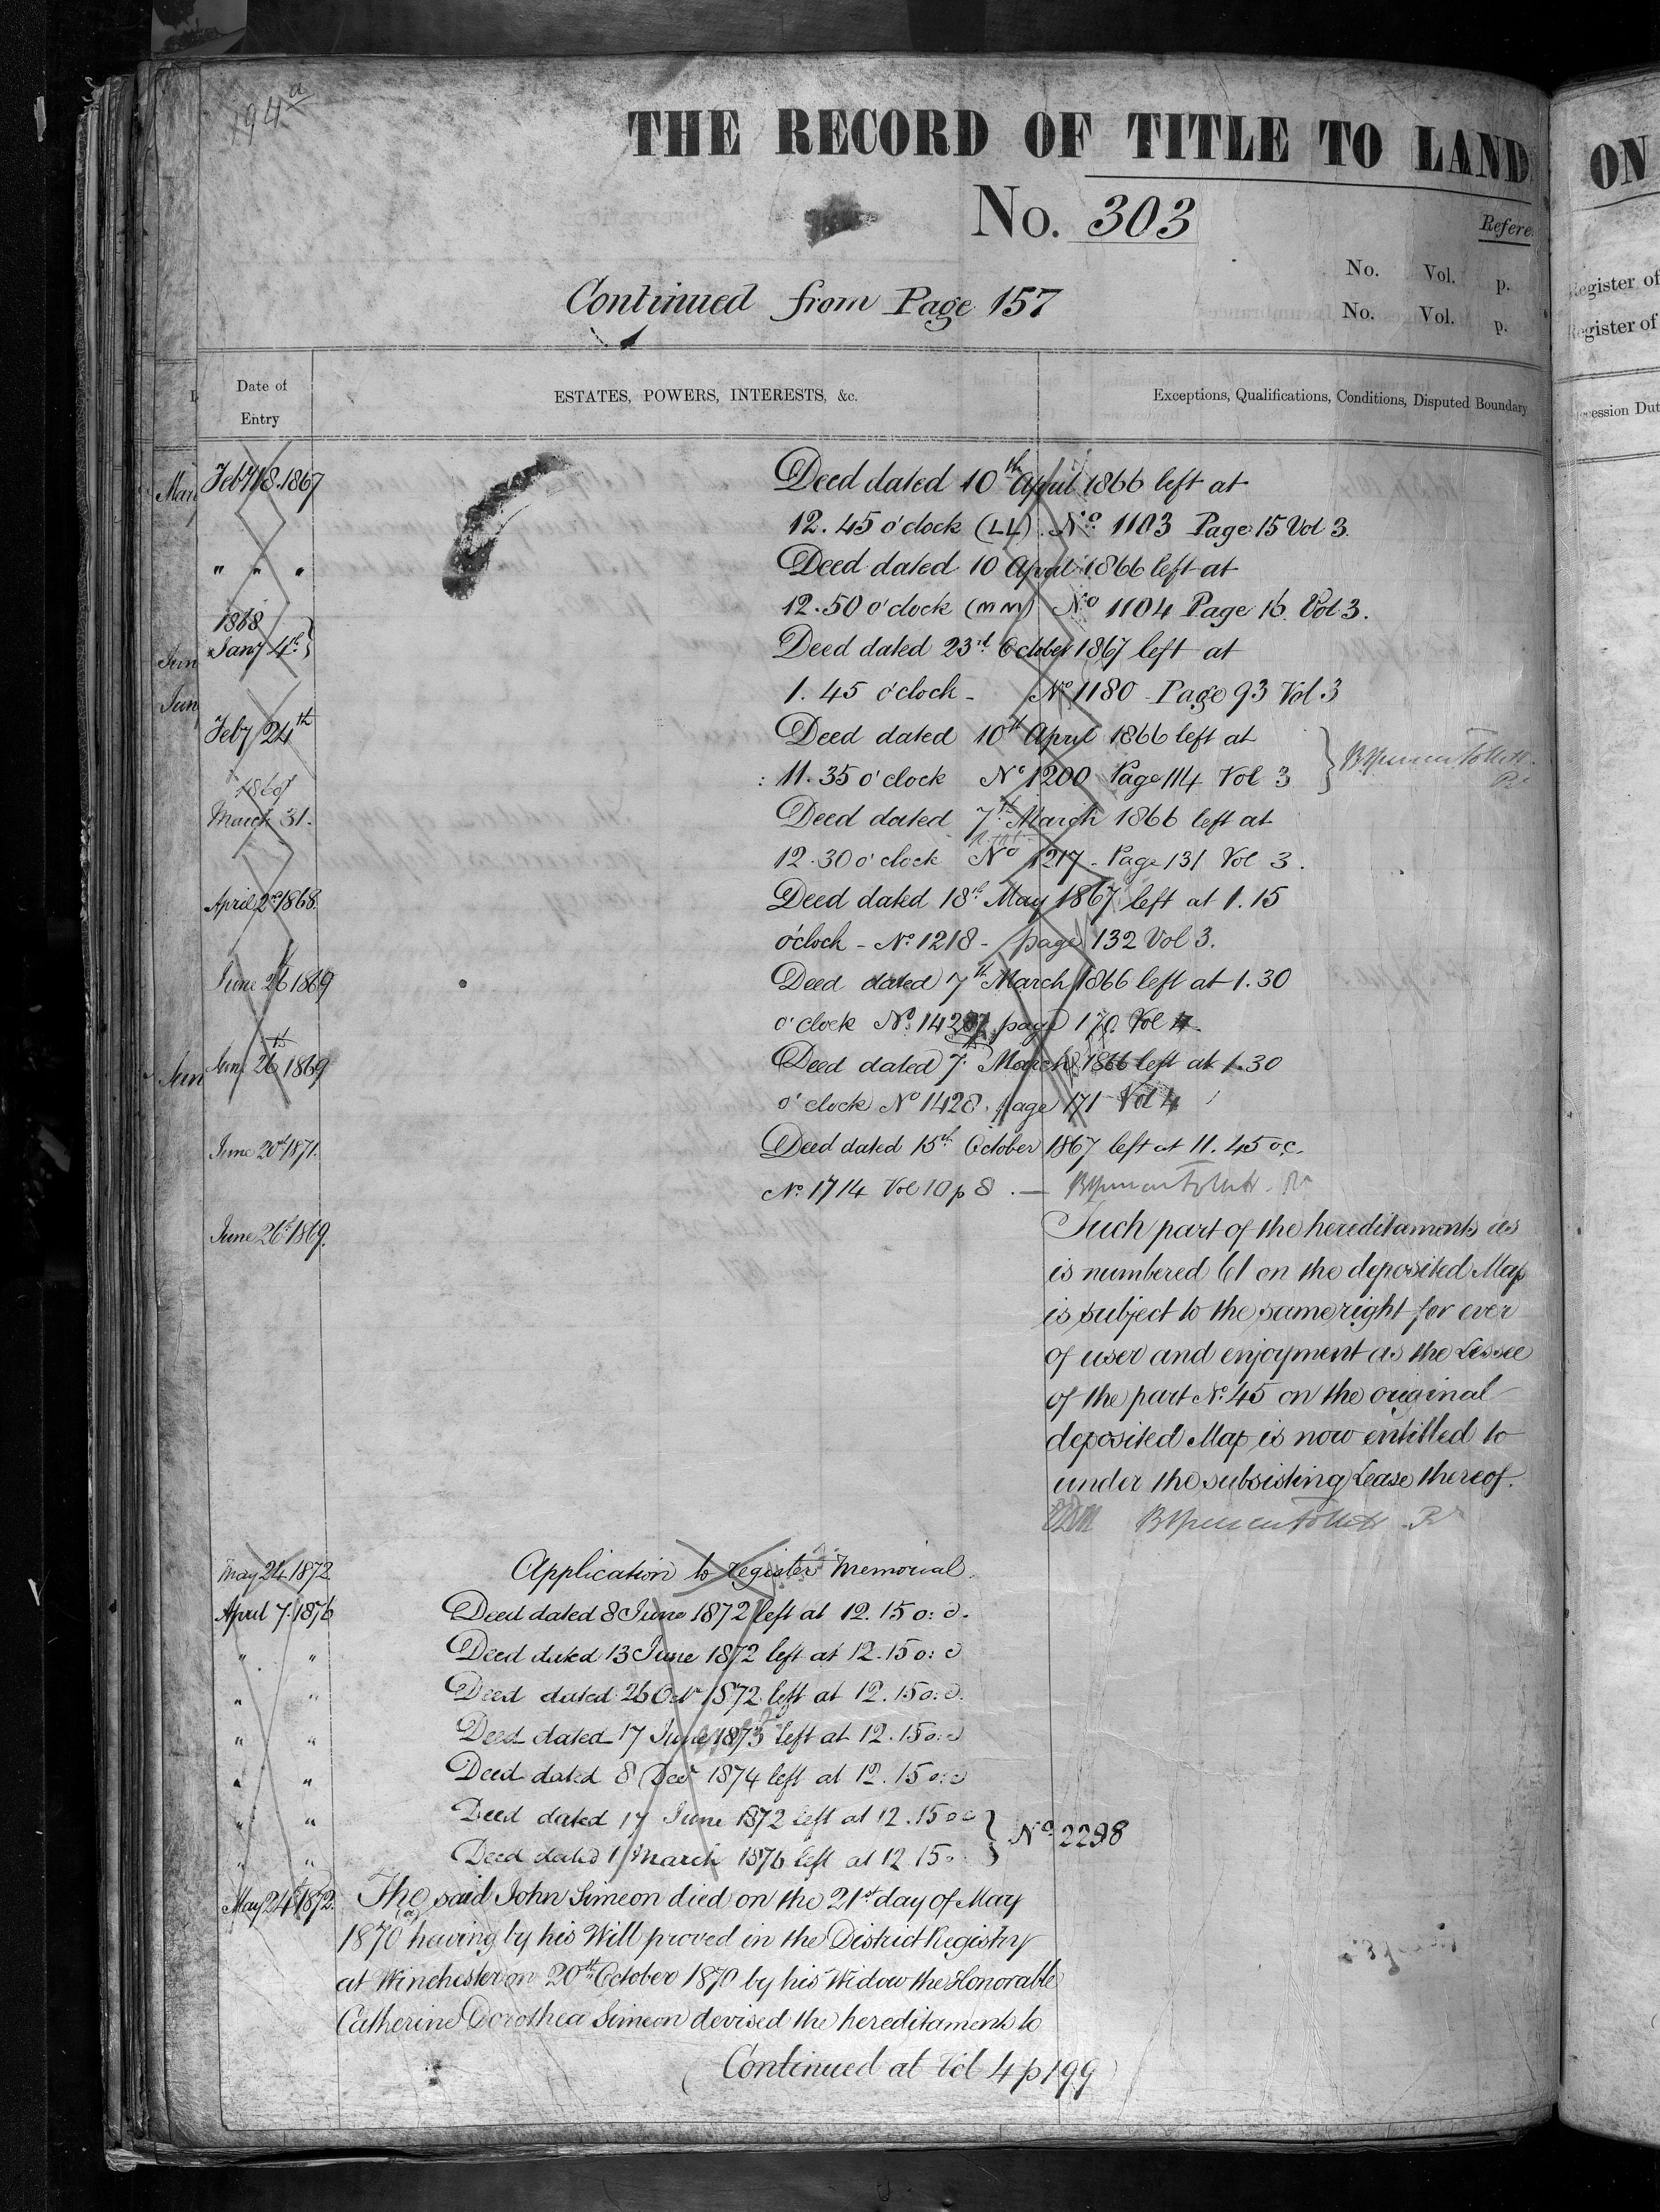 194a
THE RECORD OF TITLE TO LAND
No. 303
Refere
No. Vol. p.
No. Vol. p.
Continued from Page 157
Date of Entry
ESTATES, POWERS, INTERESTS, &c.
Exceptions, Qualifications, Conditions, Disputed Boundary
Feby 18. 1867 Deed dated 10th April 1866 left at
12.45 o'clock (LL) No. 1103 Page 15 Vol 3.
" " " Deed dated 10 April 1866 left at
12.50 o'clock (mm) No 1104 Page 16 Vol 3.
1868
Jany 4th } Deed dated 23rd October 1867 left at
1.45 o'clock - No 1180 - Page 93 Vol 3
Feby 24th Deed dated 10th April 1866 left at
11.35 o'clock No 1200 Page 114 Vol 3 }
March 31. Deed dated 7th March 1866 left at
12.30 o'clock No 1217 - Page 131 Vol 3.
April 2nd 1868. Deed dated 18th May 1867 left at 1.15
o'clock - No. 1218 - page 132 Vol 3.
June 26 1869 Deed dated 7th March 1866 left at 1.30
o'clock No. page 170 Vol 4.
June 26th 1869 Deed dated 7th March 1866 left at 1.30
o'clock No 1428. page 171 Vol 4
June 20th 1871. Deed dated 15th October 1867 left at 11.45 o.c.
No. 1714 Vol 10 p 8. —
June 26th 1869. Such part of the hereditaments as
is numbered 61 on the deposited Map
is subject to the same right for ever
of user and enjoyment as the Lessee
of the part No. 45 on the original
deposited Map is now entitled to
under the subsisting Lease thereof.
May 24 1872 Application to register Memorial.
April 7. 1876 Deed dated 8 June 1872 left at 12.15 o:c.
" " Deed dated 13 June 1872 left at 12.15 o:c
" " Deed dated 26 Octr 1872 left at 12.15 o:c.
" " Deed dated 17 June 1873 left at 12.15 o:c
" " Deed dated 8 Decr 1874 left at 12.15 o:c
" " Deed dated 17 June 1872 left at 12.15 o c
" " Deed dated 1 March 1876 left at 12 15 o } No 2298
May 24th 1872. The said John Simeon died on the 21st day of May
1870 (a) having by his Will proved in the District Registry
at Winchester on 20th October 1870 by his Widow the Honorable
Catherine Dorothea Simeon devised the hereditaments to
(Continued at Vol 4 p 199)
ON
Register of
Register of
cession Dut